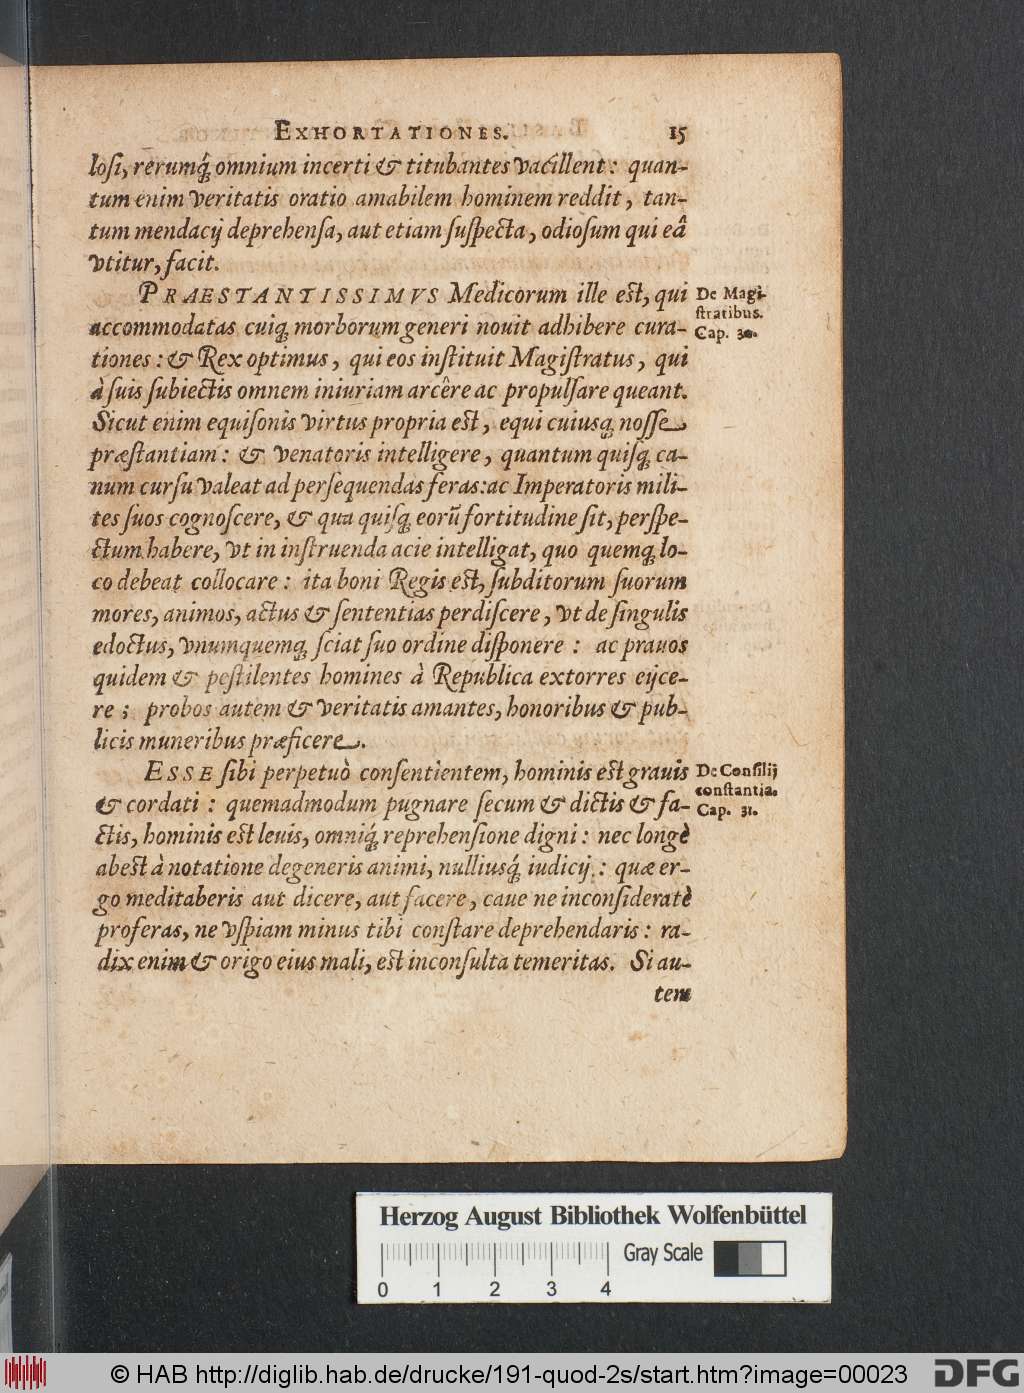 EXHORTATIONES. 15
loſi, rerumq́ꝫ omnium incerti & titubantes vacillent: quan-
tum enim veritatis oratio amabilem hominem reddit, tan-
tum mendacij deprehenſa, aut etiam ſuſpecta, odioſum qui eâ
vtitur, facit.
PRAESTANTISSIMVS Medicorum ille eſt, qui
accommodatas cuiqꝫ morborum generi nouit adhibere cura-
tiones: & Rex optimus, qui eos inſtituit Magiſtratus, qui
à ſuis ſubiectis omnem iniuriam arcêre ac propulſare queant.
Sicut enim equiſonis virtus propria eſt, equi cuiusqꝫ noſſe
præſtantiam: & venatoris intelligere, quantum quiſqꝫ ca-
num curſu valeat ad perſequendas feras: ac Imperatoris mili-
tes ſuos cognoſcere, & qua quiſqꝫ eorũ fortitudine ſit, perſpe-
ctum habere, vt in inſtruenda acie intelligat, quo quemqꝫ lo-
co debeat collocare: ita boni Regis eſt, ſubditorum ſuorum
mores, animos, actus & ſententias perdiſcere, vt de ſingulis
edoctus, vnumquemqꝫ ſciat ſuo ordine diſponere: ac prauos
quidem & peſtilentes homines à Republica extorres eijce-
re; probos autem & veritatis amantes, honoribus & pub-
licis muneribus præficere.
De Magi-
ſtratibus.
Cap. 30.
ESSE ſibi perpetuò conſentientem, hominis eſt grauis
& cordati: quemadmodum pugnare ſecum & dictis & fa-
ctis, hominis eſt leuis, omniq́ꝫ reprehenſione digni: nec longè
abeſt à notatione degeneris animi, nulliusq́ꝫ iudicij: quæ er-
go meditaberis aut dicere, aut facere, caue ne inconſideratè
proferas, ne vſpiam minus tibi conſtare deprehendaris: ra-
dix enim & origo eius mali, eſt inconſulta temeritas. Si au-
tem
De Conſilij
conſtantia.
Cap. 31.
Herzog August Bibliothek Wolfenbüttel
Gray Scale
0 1 2 3 4
© HAB http://diglib.hab.de/drucke/191-quod-2s/start.htm?image=00023
DFG